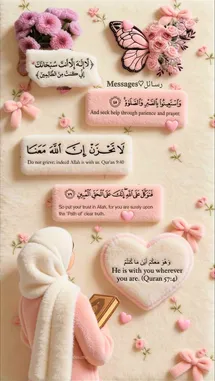 ﴿لَّا إِلَٰهَ إِلَّا أَنتَ سُبْحَانَكَ
إِنِّي كُنتُ مِنَ الظَّالِمِينَ﴾
Messages♡رسائل
وَاسْتَعِينُوا بِالصَّبْرِ وَالصَّلَاةِ
And seek help through patience and prayer
لَا تَحْزَنْ إِنَّ اللَّهَ مَعَنَا
Do not grieve; indeed Allah is with us. Qur'an 9:40
فَتَوَكَّلْ عَلَى اللَّهِ إِنَّكَ عَلَى الْحَقِّ الْمُبِينِ
So put your trust in Allah, for you are surely upon
the "Path of" clear truth.
وَهُوَ مَعَكُمْ أَيْنَ مَا كُنتُمْ
He is with you wherever
you are. (Quran 57:4)